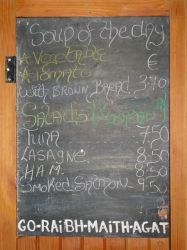 Soup of the day
€
A Vegetable
A Tomato
With BROWN Bread 3.70
Salads
Tuna 7.50
LASAGNE 8.50
HAM 8.50
Smoked Salmon 9.50
GO-RAiBH-MAiTH-AGAT